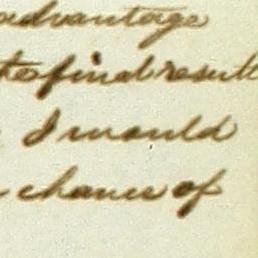 advantage
to final result
I would
chance of